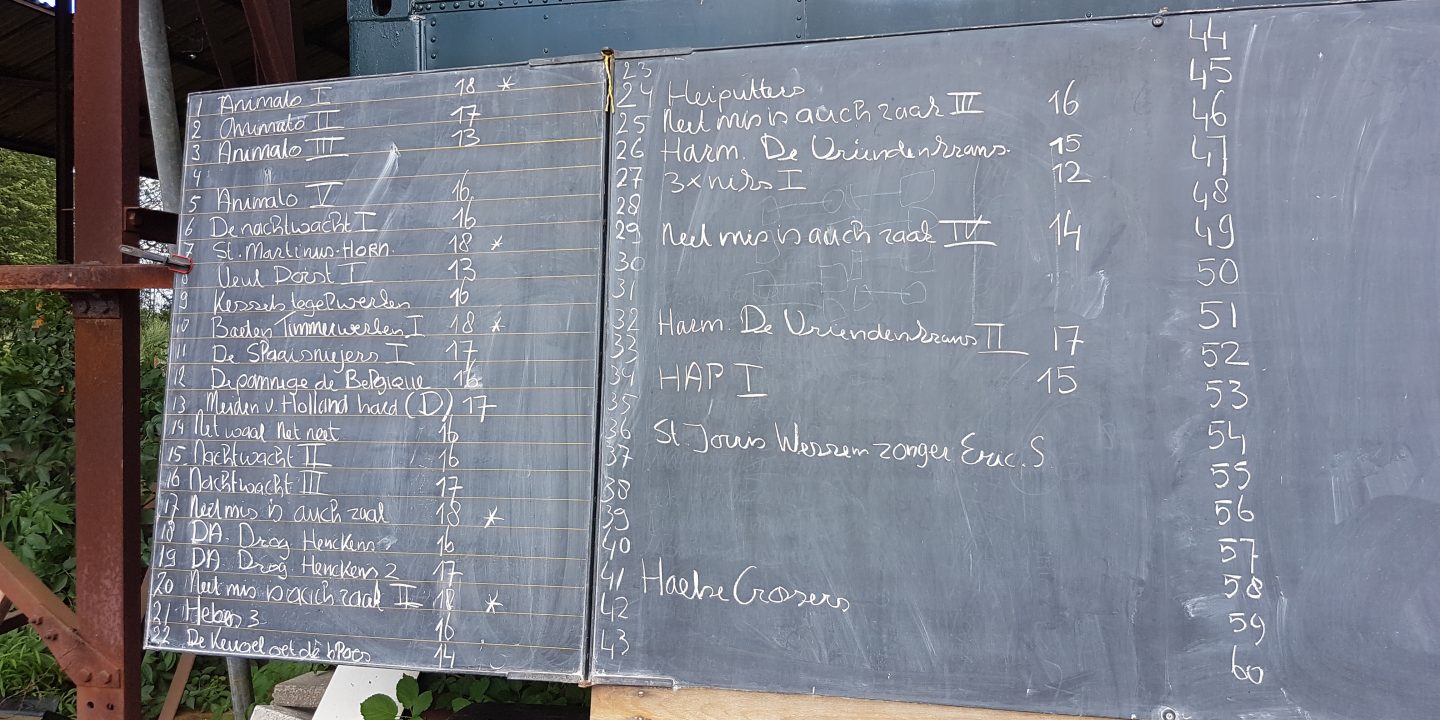 1 Animato I 18 *
2 Animato II 17
3 Animato III 13
4
5 Animato V 16
6 De nachtwacht I 16
7 St. Martinus-Horn. 18 *
8 Veul Dorst I 13
9 Kessels tegelwerken 16
10 Baeten Timmerwerken I 18 *
11 De Spaaismejers I 17
12 Depannage de Belgique 16
13 Meiden v. Holland hard (D) 17
14 Net waal Net neet 16
15 Nachtwacht II 16
16 Nachtwacht III 17
17 Neet mis is auch zaak 18 *
18 DA. Drog Henckens 16
19 DA. Drog. Henckens 2 17
20 Neet mis is auch zaak II 18 *
21 3 16
22 De Keugel oet de 14
23
24 Heiputters
25 Neet mis is auch zaak III 16
26 Harm. De Vriendenkrans. 15
27 3x niks I 12
28
29 Neet mis is auch zaak IV 14
30
31
32 Harm. De Vriendenkrans II 17
33
34 HAP I 15
35
36 St. Joris Wessem zonger Eric. S
37
38
39
40
41 Haelse Crossers
42
43
44
45
46
47
48
49
50
51
52
53
54
55
56
57
58
59
60